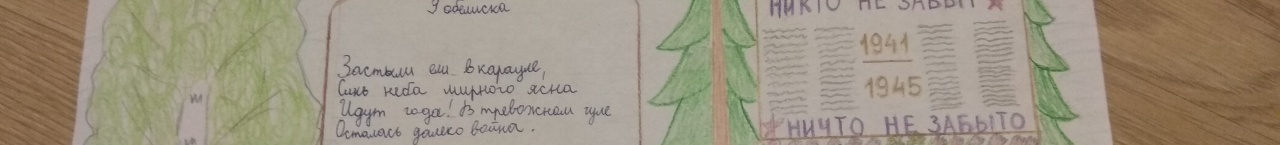 У обелиска
Застыли ели в карауле,
Синь неба мирного ясна
Идут года! В тревожном гуле
Осталась далеко война.
НИКТО НЕ ЗАБЫТ
1941
1945
НИЧТО НЕ ЗАБЫТО